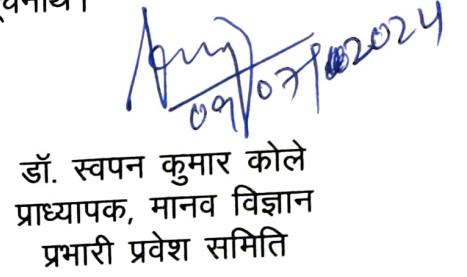 09/07/2024
डॉ. स्वपन कुमार कोले
प्राध्यापक, मानव विज्ञान
प्रभारी प्रवेश समिति